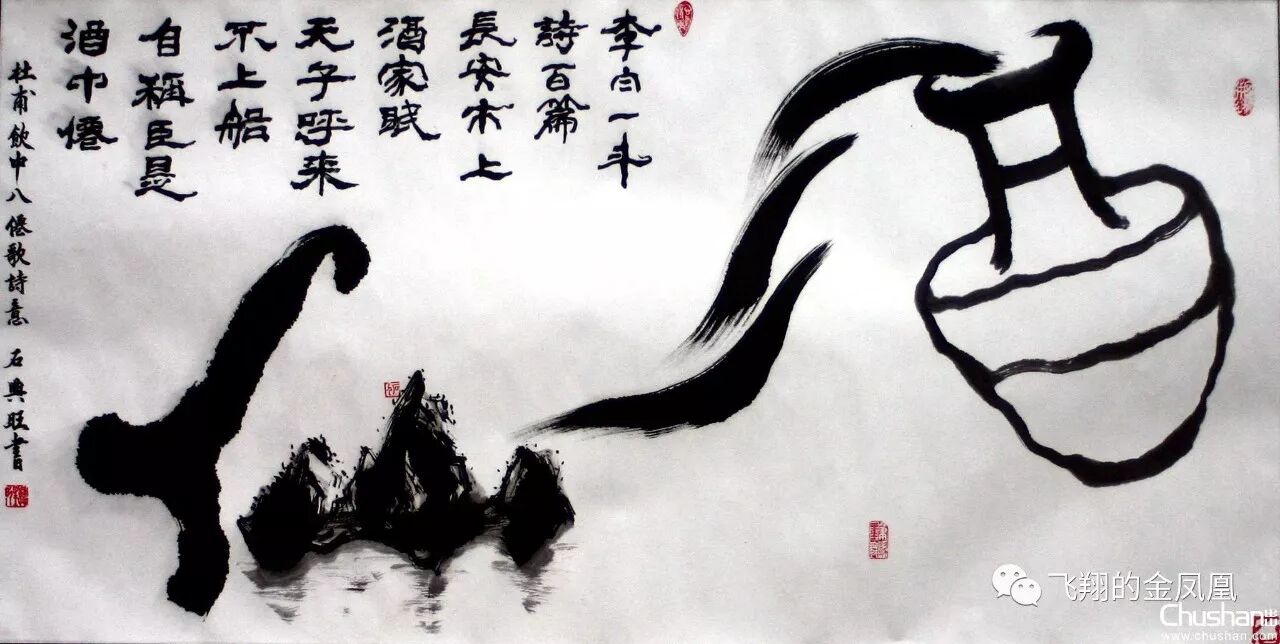 酒仙
李白一斗
詩百篇
長安市上
酒家眠
天子呼来
不上船
自稱臣是
酒中僊
杜甫飲中八僊歌詩意 石興旺書
飞翔的金凤凰
Chushan
www.chushan.com